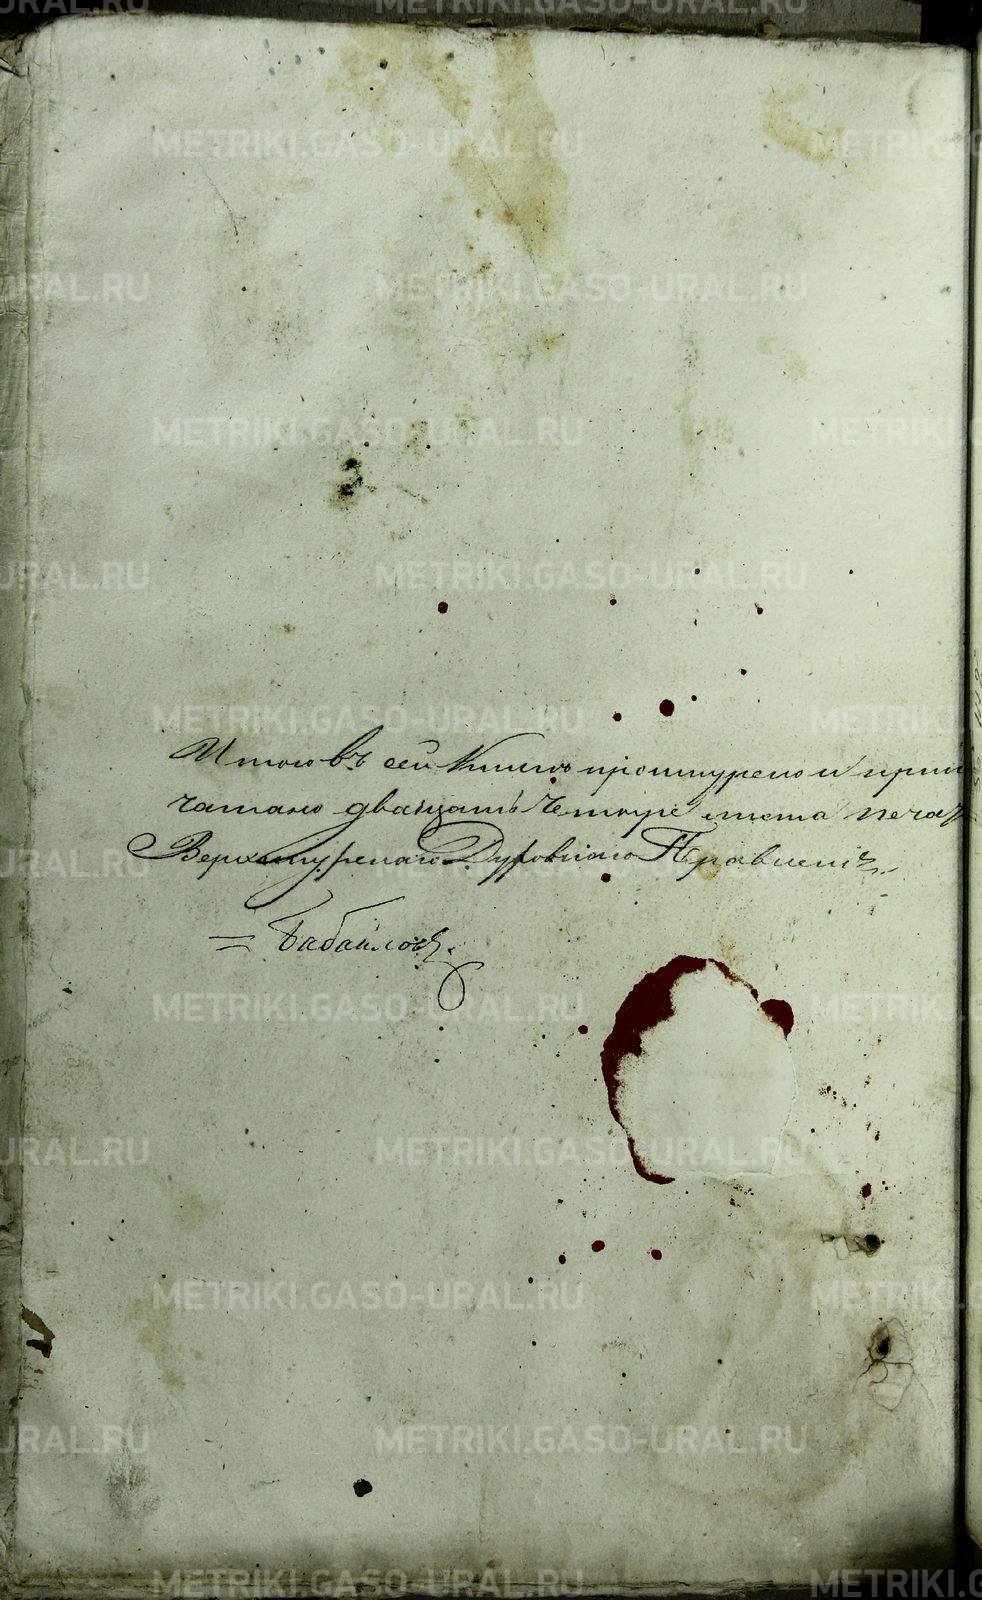 Итого въ сей Книгѣ прошнурено и припе
чатано двацать Четыре листа печат
Верхотурскаго Духовнаго Правленія
Бабайловъ.
METRIKI.GASO-URAL.RU